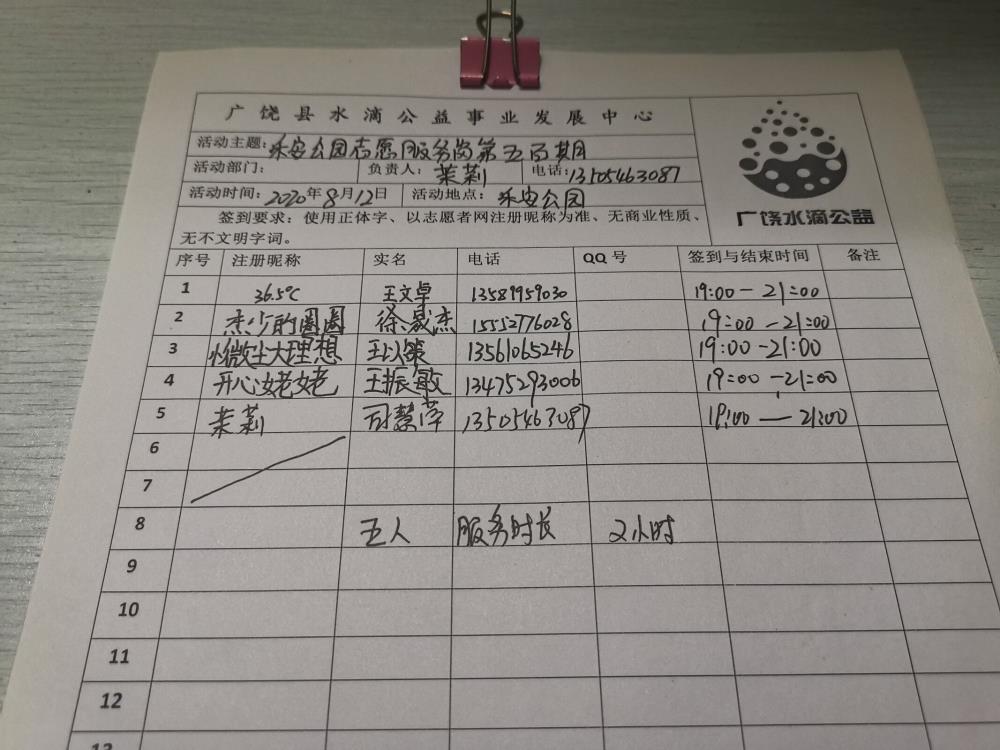 广饶县水滴公益事业发展中心
活动主题：乐安公园志愿服务岗第五百期
活动部门： 负责人：茉莉 电话：13505463087
活动时间：2020年8月12日 活动地点：乐安公园
广饶水滴公益
签到要求：使用正体字、以志愿者网注册昵称为准、无商业性质、
无不文明字词。
序号 注册昵称 实名 电话 QQ号 签到与结束时间 备注
1 36.5℃ 王文卓 13589959030 19:00-21:00
2 杰少的圈圈 徐晟杰 15552776028 19:00-21:00
3 微尘大理想 13561065246 19:00-21:00
4 开心姥姥 王振敏 13475293006 19:00-21:00
5 茉莉 慧萍 13505463087 19:00—21:00
6
7
8 五人 服务时长 2小时
9
10
11
12
13